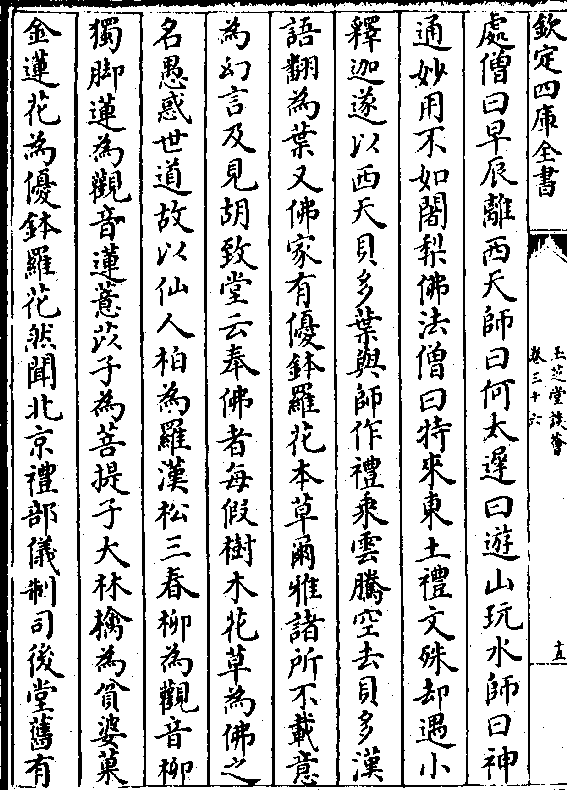 欽定四庫全書
玉芝堂談薈
卷三十六
十五
處僧曰早辰離西天師曰何太遲曰遊山玩水師曰神
通妙用不如闍梨佛法僧曰特來東土禮文殊却遇小
釋迦遂以西天貝多葉與師作禮乘雲騰空去貝多漢
語翻為葉又佛家有優鉢羅花本草爾雅諸所不載意
為幻言及見胡致堂云奉佛者每假樹木花草為佛之
名愚惑世道故以仙人柏為羅漢松三春柳為觀音柳
獨脚蓮為觀音蓮薏苡子為菩提子大林檎為貧婆菓
金蓮花為優鉢羅花然聞北京禮部儀制司後堂舊有